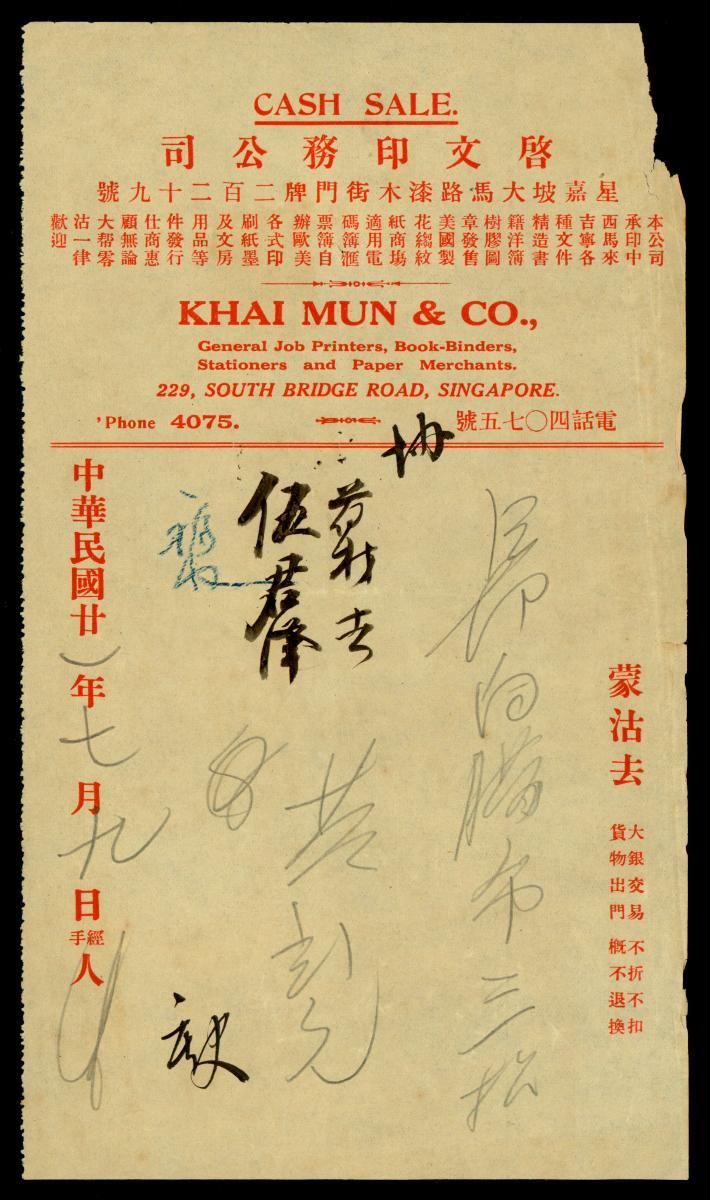 CASH SALE.
啓文印務公司
星嘉坡大馬路漆木街門牌二百二十九號
本公司承印中西馬來吉寧各種文件精造書籍洋簿樹膠圖章發售美國製花縐紋紙商塲適用電碼簿滙票簿自辦歐美各式印刷紙墨及文房用品等件發行仕商惠顧無論大帮零沽一律歡迎
KHAI MUN & CO.,
General Job Printers, Book-Binders,
Stationers and Paper Merchants.
229, SOUTH BRIDGE ROAD, SINGAPORE.
'Phone 4075.
電話四〇七五號
蒙沽去
大銀交易 不折不扣
貨物出門 概不退換
協
伍君
中華民國廿一年七月九日經手人